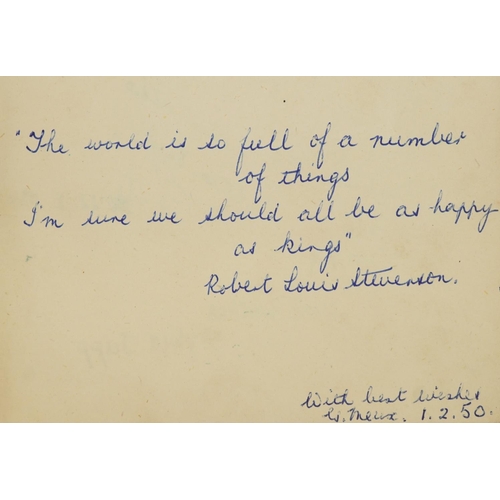 "The world is so full of a number
of things
I'm sure we should all be as happy
as kings"
Robert Louis Stevenson.
With best wishes
G. Meux. 1.2.50.